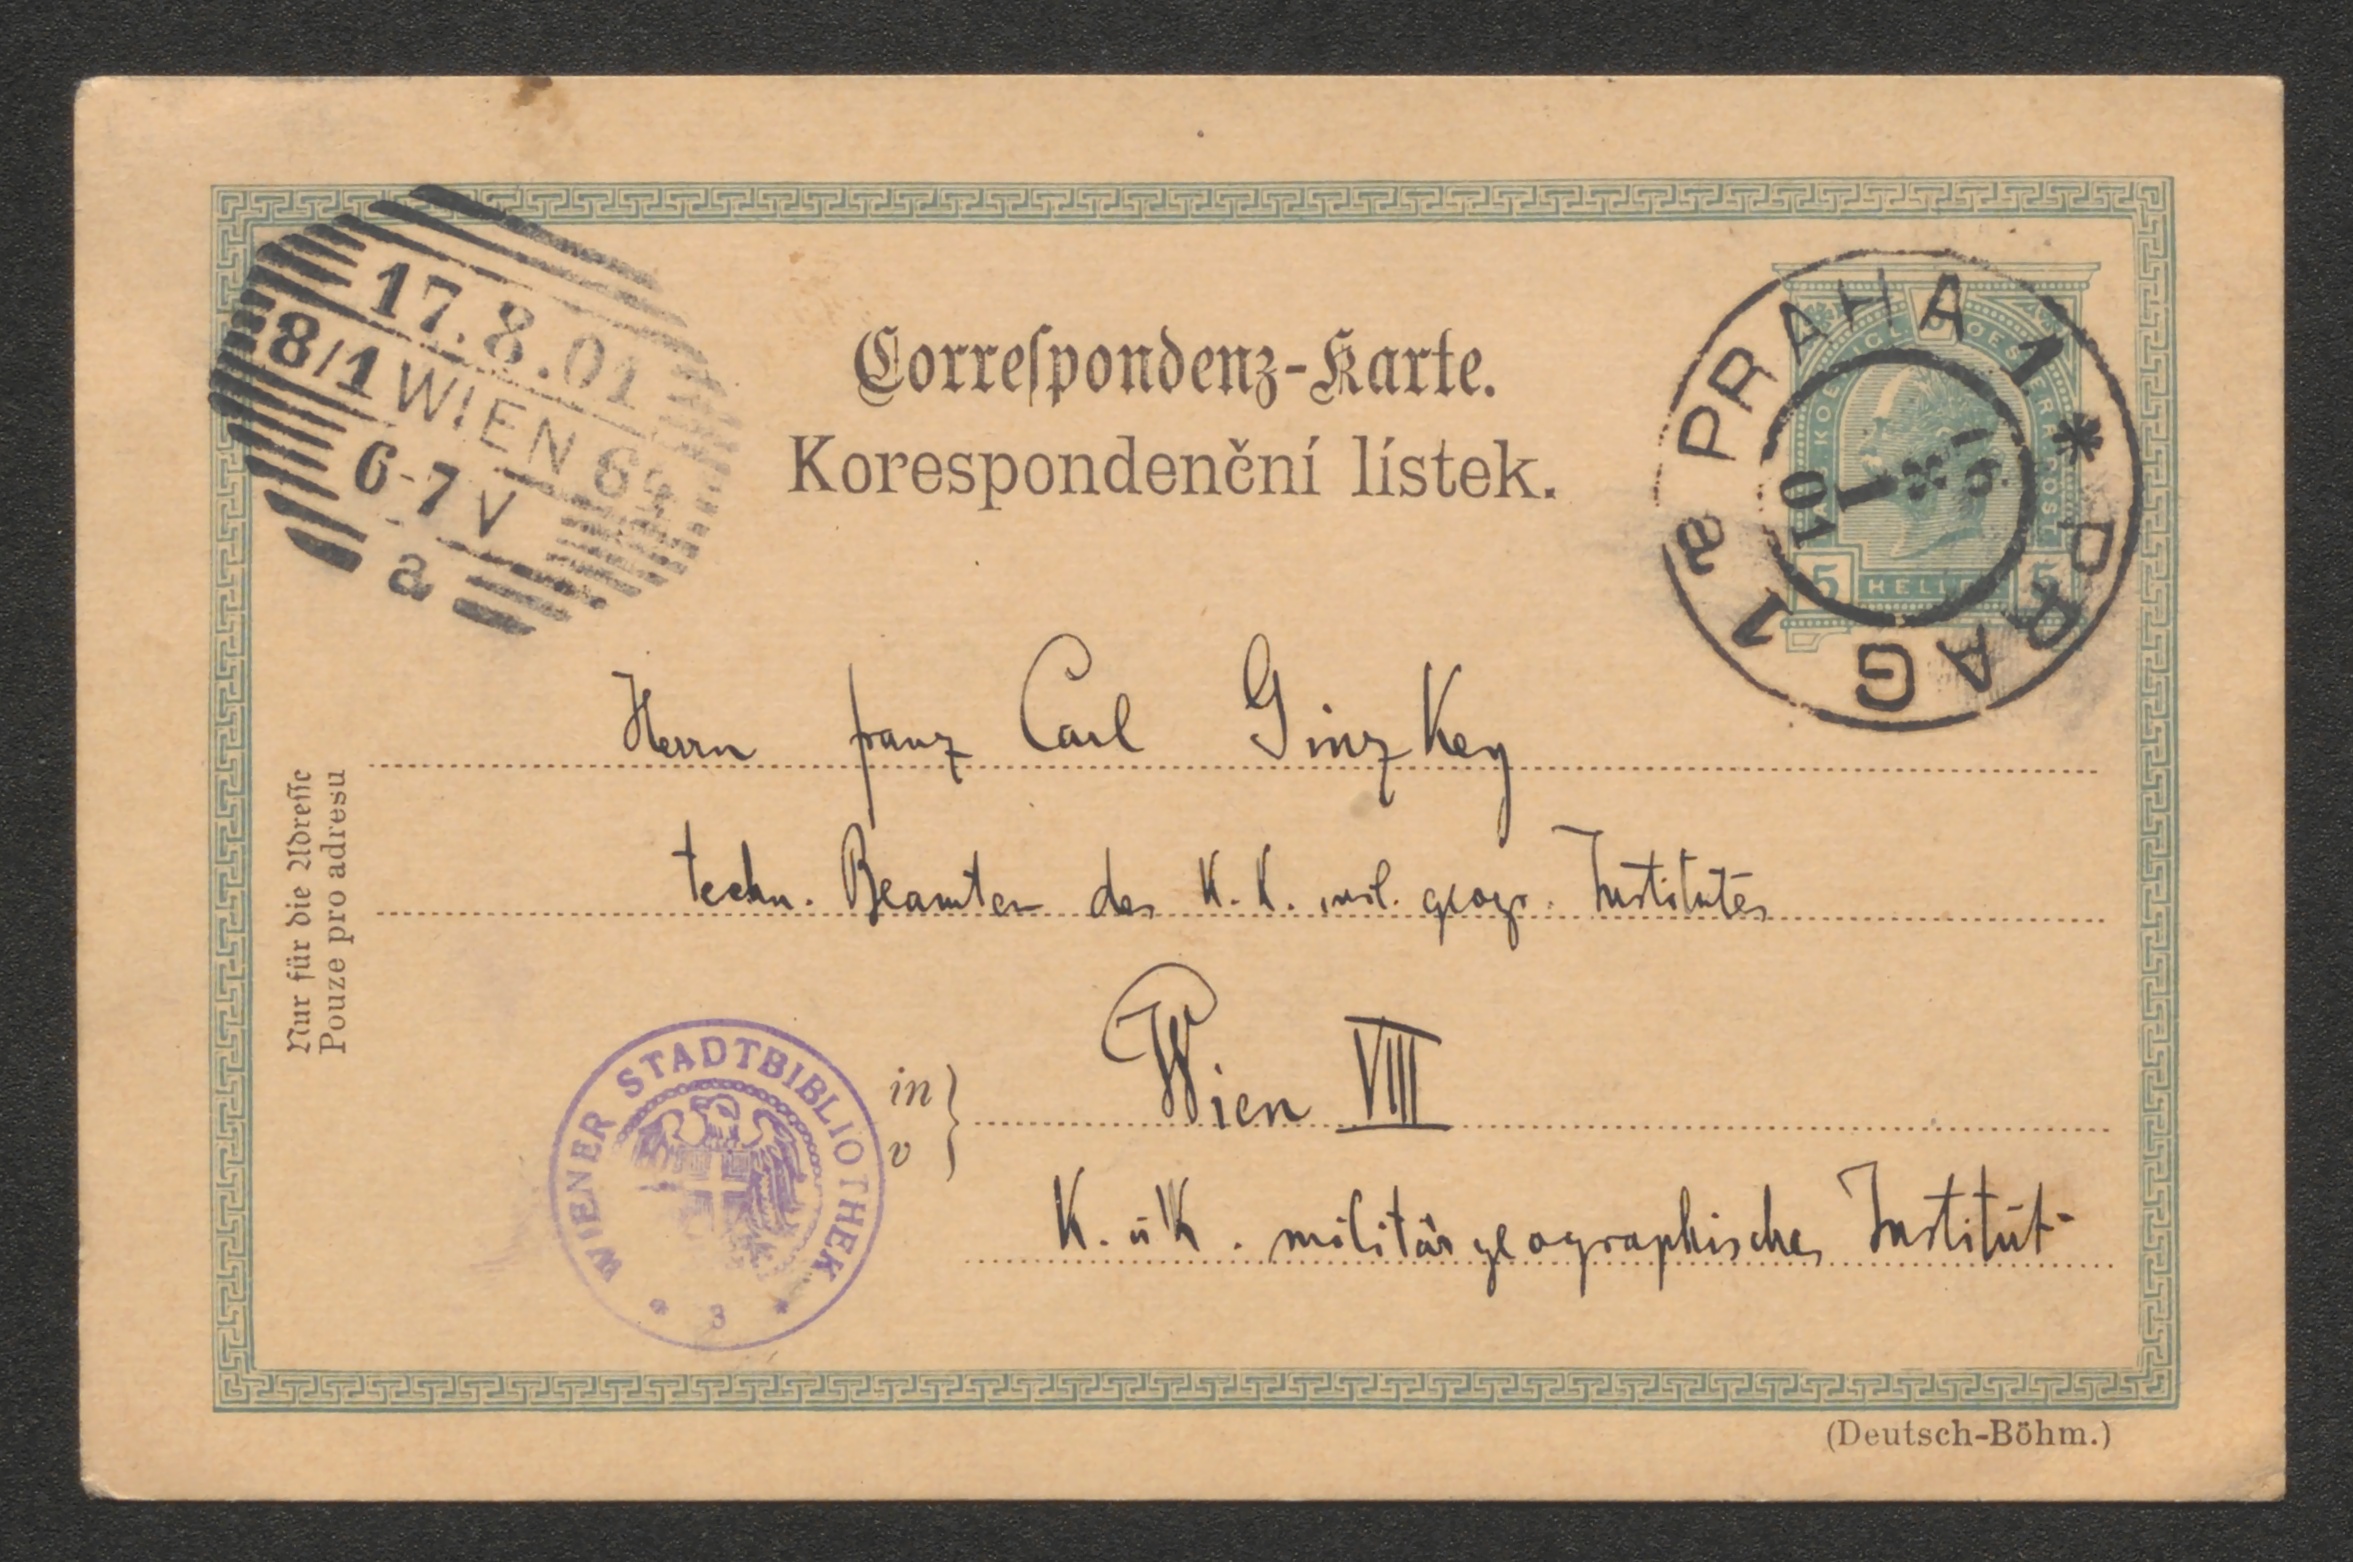 17.8.01
8/1 WIEN 64
6-7 V
a
Correſpondenz-Karte.
Korespondenční lístek.
PRAHA 1 * PRAG 1 a
5 HELLER 5
Herrn Franz Carl Ginzkey
techn. Beamten des K. K. mil. geogr. Institutes
Nur für die Adreſſe
Pouze pro adresu
in
v
Wien VIII
K. u K. militärgeographisches Institut
WIENER STADTBIBLIOTHEK
* 3 *
(Deutsch-Böhm.)